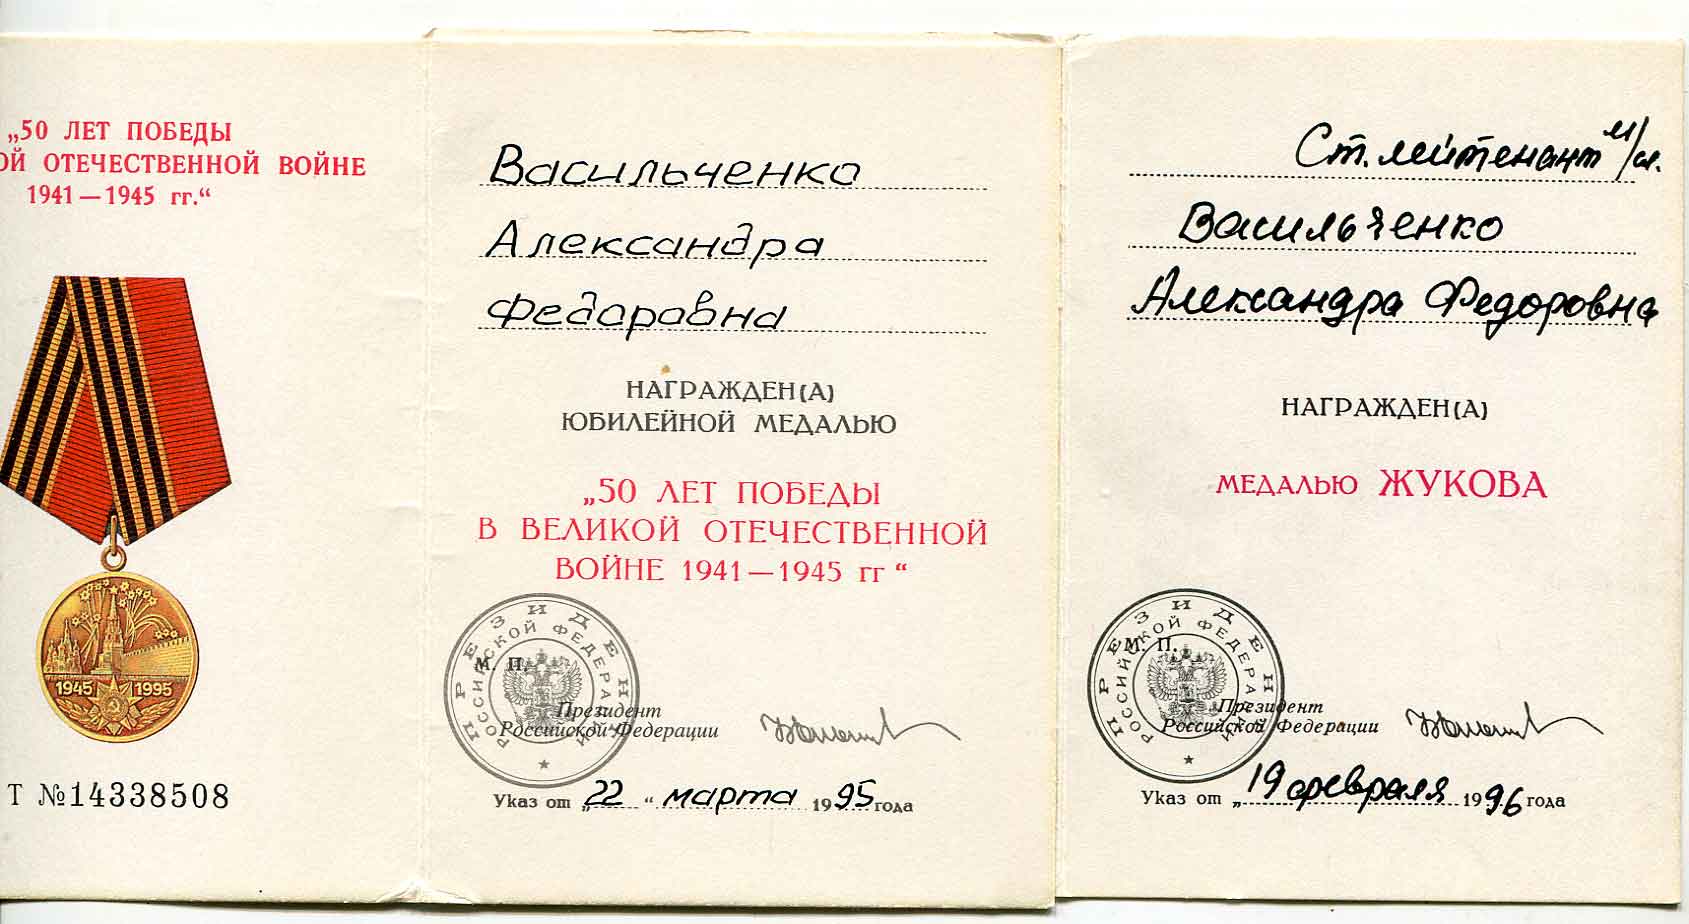 „50 ЛЕТ ПОБЕДЫ
ОЙ ОТЕЧЕСТВЕННОЙ ВОЙНЕ
1941—1945 гг.“
1945 1995
Т №14338508
Васильченко
Александра
Федоровна
НАГРАЖДЕН(А)
ЮБИЛЕЙНОЙ МЕДАЛЬЮ
„50 ЛЕТ ПОБЕДЫ
В ВЕЛИКОЙ ОТЕЧЕСТВЕННОЙ
ВОЙНЕ 1941—1945 гг “
ПРЕЗИДЕНТ
РОССИЙСКОЙ ФЕДЕРАЦИИ
М. П.
Президент
Российской Федерации
Указ от „22“ марта 1995 года
Ст. лейтенант м/сл.
Васильченко
Александра Федоровна
НАГРАЖДЕН(А)
МЕДАЛЬЮ ЖУКОВА
ПРЕЗИДЕНТ
РОССИЙСКОЙ ФЕДЕРАЦИИ
М. П.
Президент
Российской Федерации
Указ от „19 февраля 1996 года